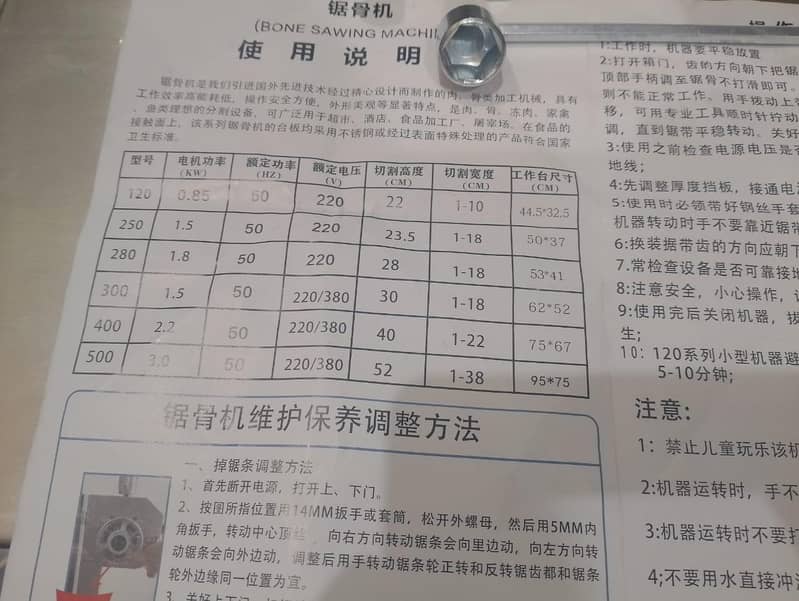 锯骨机
(BONE SAWING MACHI
使用说明
锯骨机是我们引进国外先进技术经过精心设计而制作的肉、骨类加工机械，具有
工作效率高能耗低，操作安全方便，外形美观等显著特点，是肉、骨、冻肉、家禽
、鱼类理想的分割设备，可广泛用于超市、酒店、食品加工厂、屠宰场。在食品的
接触面上，该系列锯骨机的台板均采用不锈钢或经过表面特殊处理的产品符合国家
卫生标准。
型号 电机功率(KW) 额定功率(HZ) 额定电压(V) 切割高度(CM) 切割宽度(CM) 工作台尺寸(CM)
120 0.85 50 220 22 1-10 44.5*32.5
250 1.5 50 220 23.5 1-18 50*37
280 1.8 50 220 28 1-18 53*41
300 1.5 50 220/380 30 1-18 62*52
400 2.2 50 220/380 40 1-22 75*67
500 3.0 50 220/380 52 1-38 95*75
锯骨机维护保养调整方法
一、掉锯条调整方法
1、首先断开电源，打开上、下门。
2、按图所指位置用14MM扳手或套筒，松开外螺母，然后用5MM内
角扳手，转动中心顶丝，向右方向转动锯条会向里边动，向左方向转
动锯条会向外边动，调整后用手转动锯条轮正转和反转锯齿都和锯条
轮外边缘同一位置为宜。
操作
1:工作时，机器要平稳放置
2:打开箱门，齿的方向朝下把锯
顶部手柄调至锯骨不打滑即可。
则不能正常工作。用手拨动上
移，可用专业工具顺时针拧动
调，直到锯带平稳转动。关好
3:使用之前检查电源电压是否
地线；
4:先调整厚度挡板，接通电
5:使用时必须带好钢丝手套
机器转动时手不要靠近锯带
6:换装据带齿的方向应朝下
7.常检查设备是否可靠接地
8:注意安全，小心操作，
9:使用完后关闭机器，拔
生；
10：120系列小型机器避
5-10分钟；
注意：
1：禁止儿童玩乐该机
2:机器运转时，手不
3:机器运转时不要打
4;不要用水直接冲